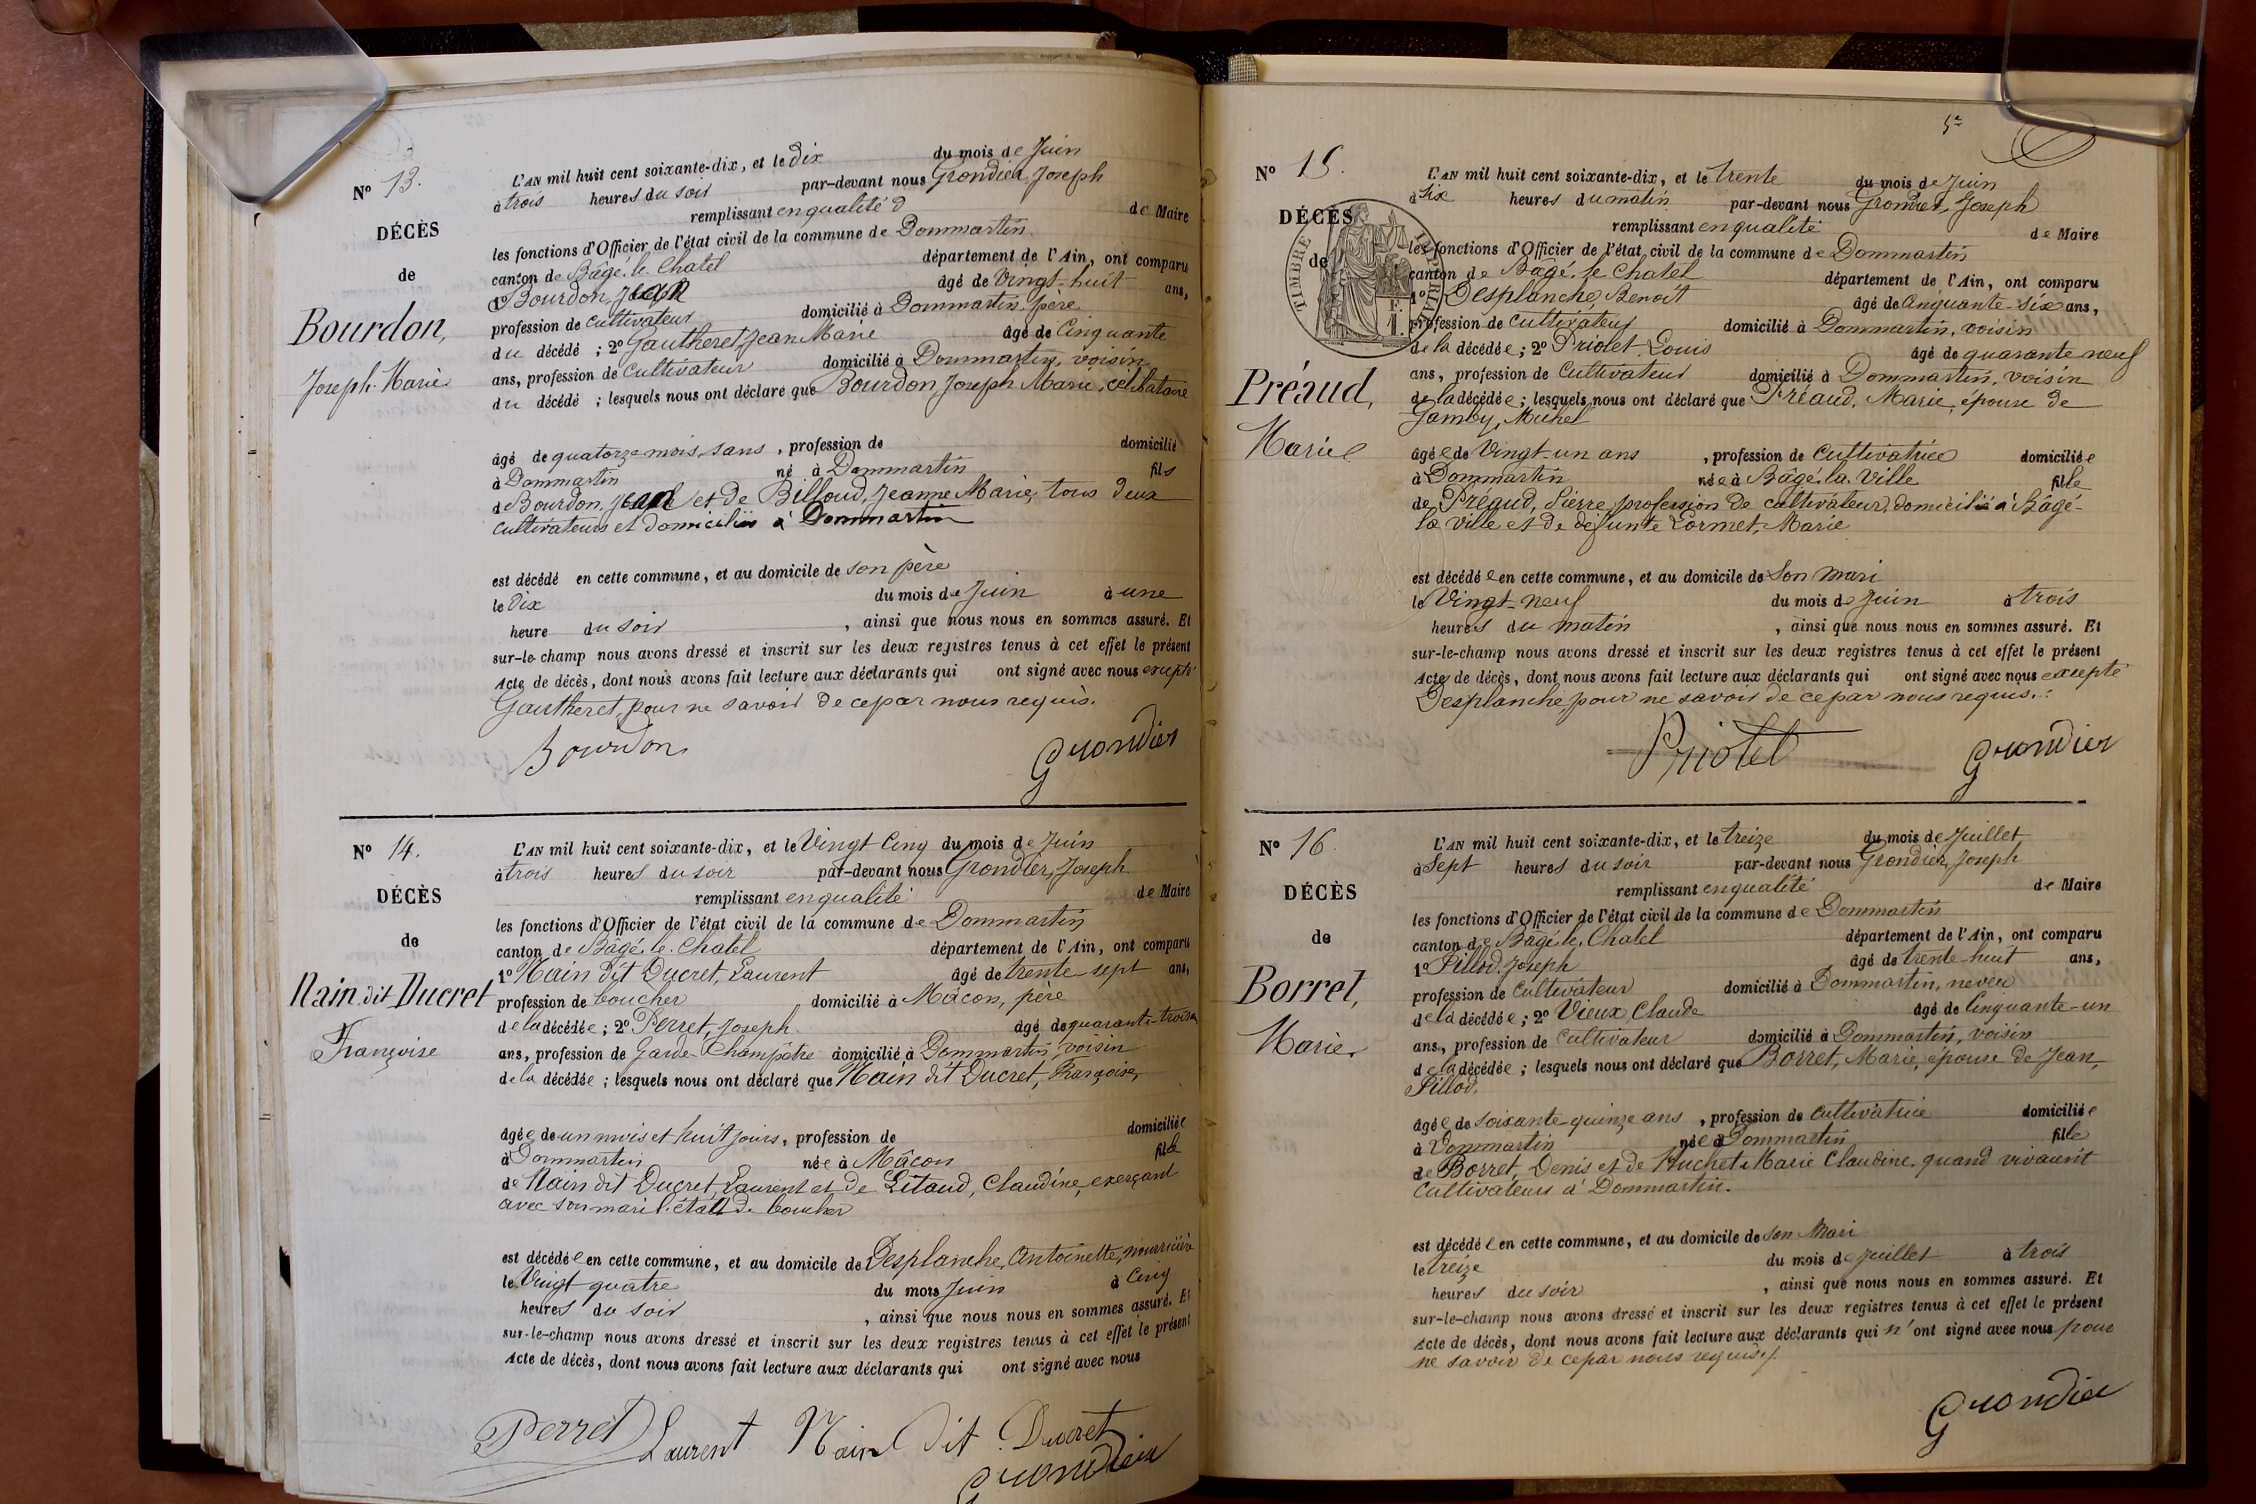 Nº 13.
DÉCÈS
de
Bourdon,
Joseph-Marie
L'AN mil huit cent soixante-dix, et le dix du mois de Juin
à trois heures du soir par-devant nous Grondier, Joseph
remplissant en qualité d de Maire
les fonctions d'Officier de l'état civil de la commune de Dommartin
canton de Bâgé-le-Chatel département de l'Ain, ont comparu
1º Bourdon, Jean âgé de Vingt-huit ans,
profession de cultivateur domicilié à Dommartin père
du décédé ; 2º Gautheret, Jean Marie âgé de Cinquante
ans, profession de Cultivateur domicilié à Dommartin, voisin
du décédé ; lesquels nous ont déclaré que Bourdon, Joseph Marie, célibataire
âgé de quatorze mois, sans , profession de domicilié
à Dommartin né à Dommartin fils
de Bourdon, Jean et de Billoud, Jeanne Marie, tous deux
cultivateurs et domiciliés à Dommartin
est décédé en cette commune, et au domicile de son père
le dix du mois de Juin à une
heure du soir , ainsi que nous nous en sommes assuré. Et
sur-le-champ nous avons dressé et inscrit sur les deux registres tenus à cet effet le présent
Acte de décès, dont nous avons fait lecture aux déclarants qui ont signé avec nous excepté
Gautheret, pour ne savoir de ce par nous requis.
Bourdon Grondier
Nº 14.
DÉCÈS
de
Nain dit Ducret
Françoise
L'AN mil huit cent soixante-dix, et le Vingt Cinq du mois de Juin
à trois heures du soir par-devant nous Grondier, Joseph
remplissant en qualité de Maire
les fonctions d'Officier de l'état civil de la commune de Dommartin
canton de Bâgé-le-Chatel département de l'Ain, ont comparu
1º Nain dit Ducret, Laurent âgé de trente-sept ans,
profession de boucher domicilié à Mâcon, père
de la décédée ; 2º Perret, Joseph âgé de quarante-trois
ans, profession de Garde-Champêtre domicilié à Dommartin, voisin
de la décédée ; lesquels nous ont déclaré que Nain dit Ducret, Françoise,
âgée de un mois et huit jours, profession de domiciliée
à Dommartin née à Mâcon fille
de Nain dit Ducret, Laurent et de Litaud, Claudine, exerçant
avec son mari l'état de boucher
est décédée en cette commune, et au domicile de Desplanche, Antoinette, nourricière
le Vingt quatre du mois Juin à Cinq
heures du soir , ainsi que nous nous en sommes assuré. Et
sur-le-champ nous avons dressé et inscrit sur les deux registres tenus à cet effet le présent
Acte de décès, dont nous avons fait lecture aux déclarants qui ont signé avec nous
Perret Laurent Nain Dit Ducret
Grondier
5e
Nº 15.
DÉCÈS
de
TIMBRE IMPÉRIAL
F.
1.
Préaud,
Marie
L'AN mil huit cent soixante-dix, et le trente du mois de Juin
à Six heures du matin par-devant nous Grondier, Joseph
remplissant en qualité de Maire
les fonctions d'Officier de l'état civil de la commune de Dommartin
canton de Bâgé-le-Chatel département de l'Ain, ont comparu
1º Desplanche, Benoît âgé de Cinquante-six ans,
profession de Cultivateur domicilié à Dommartin, voisin
de la décédée ; 2º Priolet Louis âgé de quarante neuf
ans, profession de Cultivateur domicilié à Dommartin, voisin
de la décédée ; lesquels nous ont déclaré que Préaud, Marie, épouse de
Jamby, Michel
âgée de Vingt-un ans , profession de Cultivatrice domiciliée
à Dommartin née à Bâgé-la-Ville fille
de Préaud, Pierre, profession de cultivateur, domicilié à Bâgé-
la Ville et de défunte Cormet, Marie
est décédée en cette commune, et au domicile de Son mari
le Vingt-neuf du mois de Juin à trois
heures du matin , ainsi que nous nous en sommes assuré. Et
sur-le-champ nous avons dressé et inscrit sur les deux registres tenus à cet effet le présent
Acte de décès, dont nous avons fait lecture aux déclarants qui ont signé avec nous excepté
Desplanche, pour ne savoir de ce par nous requis.
Priolet Grondier
Nº 16.
DÉCÈS
de
Borret,
Marie.
L'AN mil huit cent soixante-dix, et le treize du mois de Juillet
à Sept heures du soir par-devant nous Grondier, Joseph
remplissant en qualité de Maire
les fonctions d'Officier de l'état civil de la commune de Dommartin
canton de Bâgé-le-Chatel département de l'Ain, ont comparu
1º Pillod, Joseph âgé de trente-huit ans,
profession de Cultivateur domicilié à Dommartin, neveu
de la décédée ; 2º Vieux Claude âgé de Cinquante-un
ans, profession de Cultivateur domicilié à Dommartin, voisin
de la décédée ; lesquels nous ont déclaré que Borret, Marie, épouse de Jean,
Pillod.
âgée de soixante-quinze ans , profession de Cultivatrice domiciliée
à Dommartin née à Dommartin fille
de Borret, Denis et de Huchet Marie Claudine, quand vivaient
Cultivateurs à Dommartin.
est décédée en cette commune, et au domicile de son Mari
le treize du mois de Juillet à trois
heures du soir , ainsi que nous nous en sommes assuré. Et
sur-le-champ nous avons dressé et inscrit sur les deux registres tenus à cet effet le présent
Acte de décès, dont nous avons fait lecture aux déclarants qui n'ont signé avec nous pour
ne savoir de ce par nous requis.
Grondier